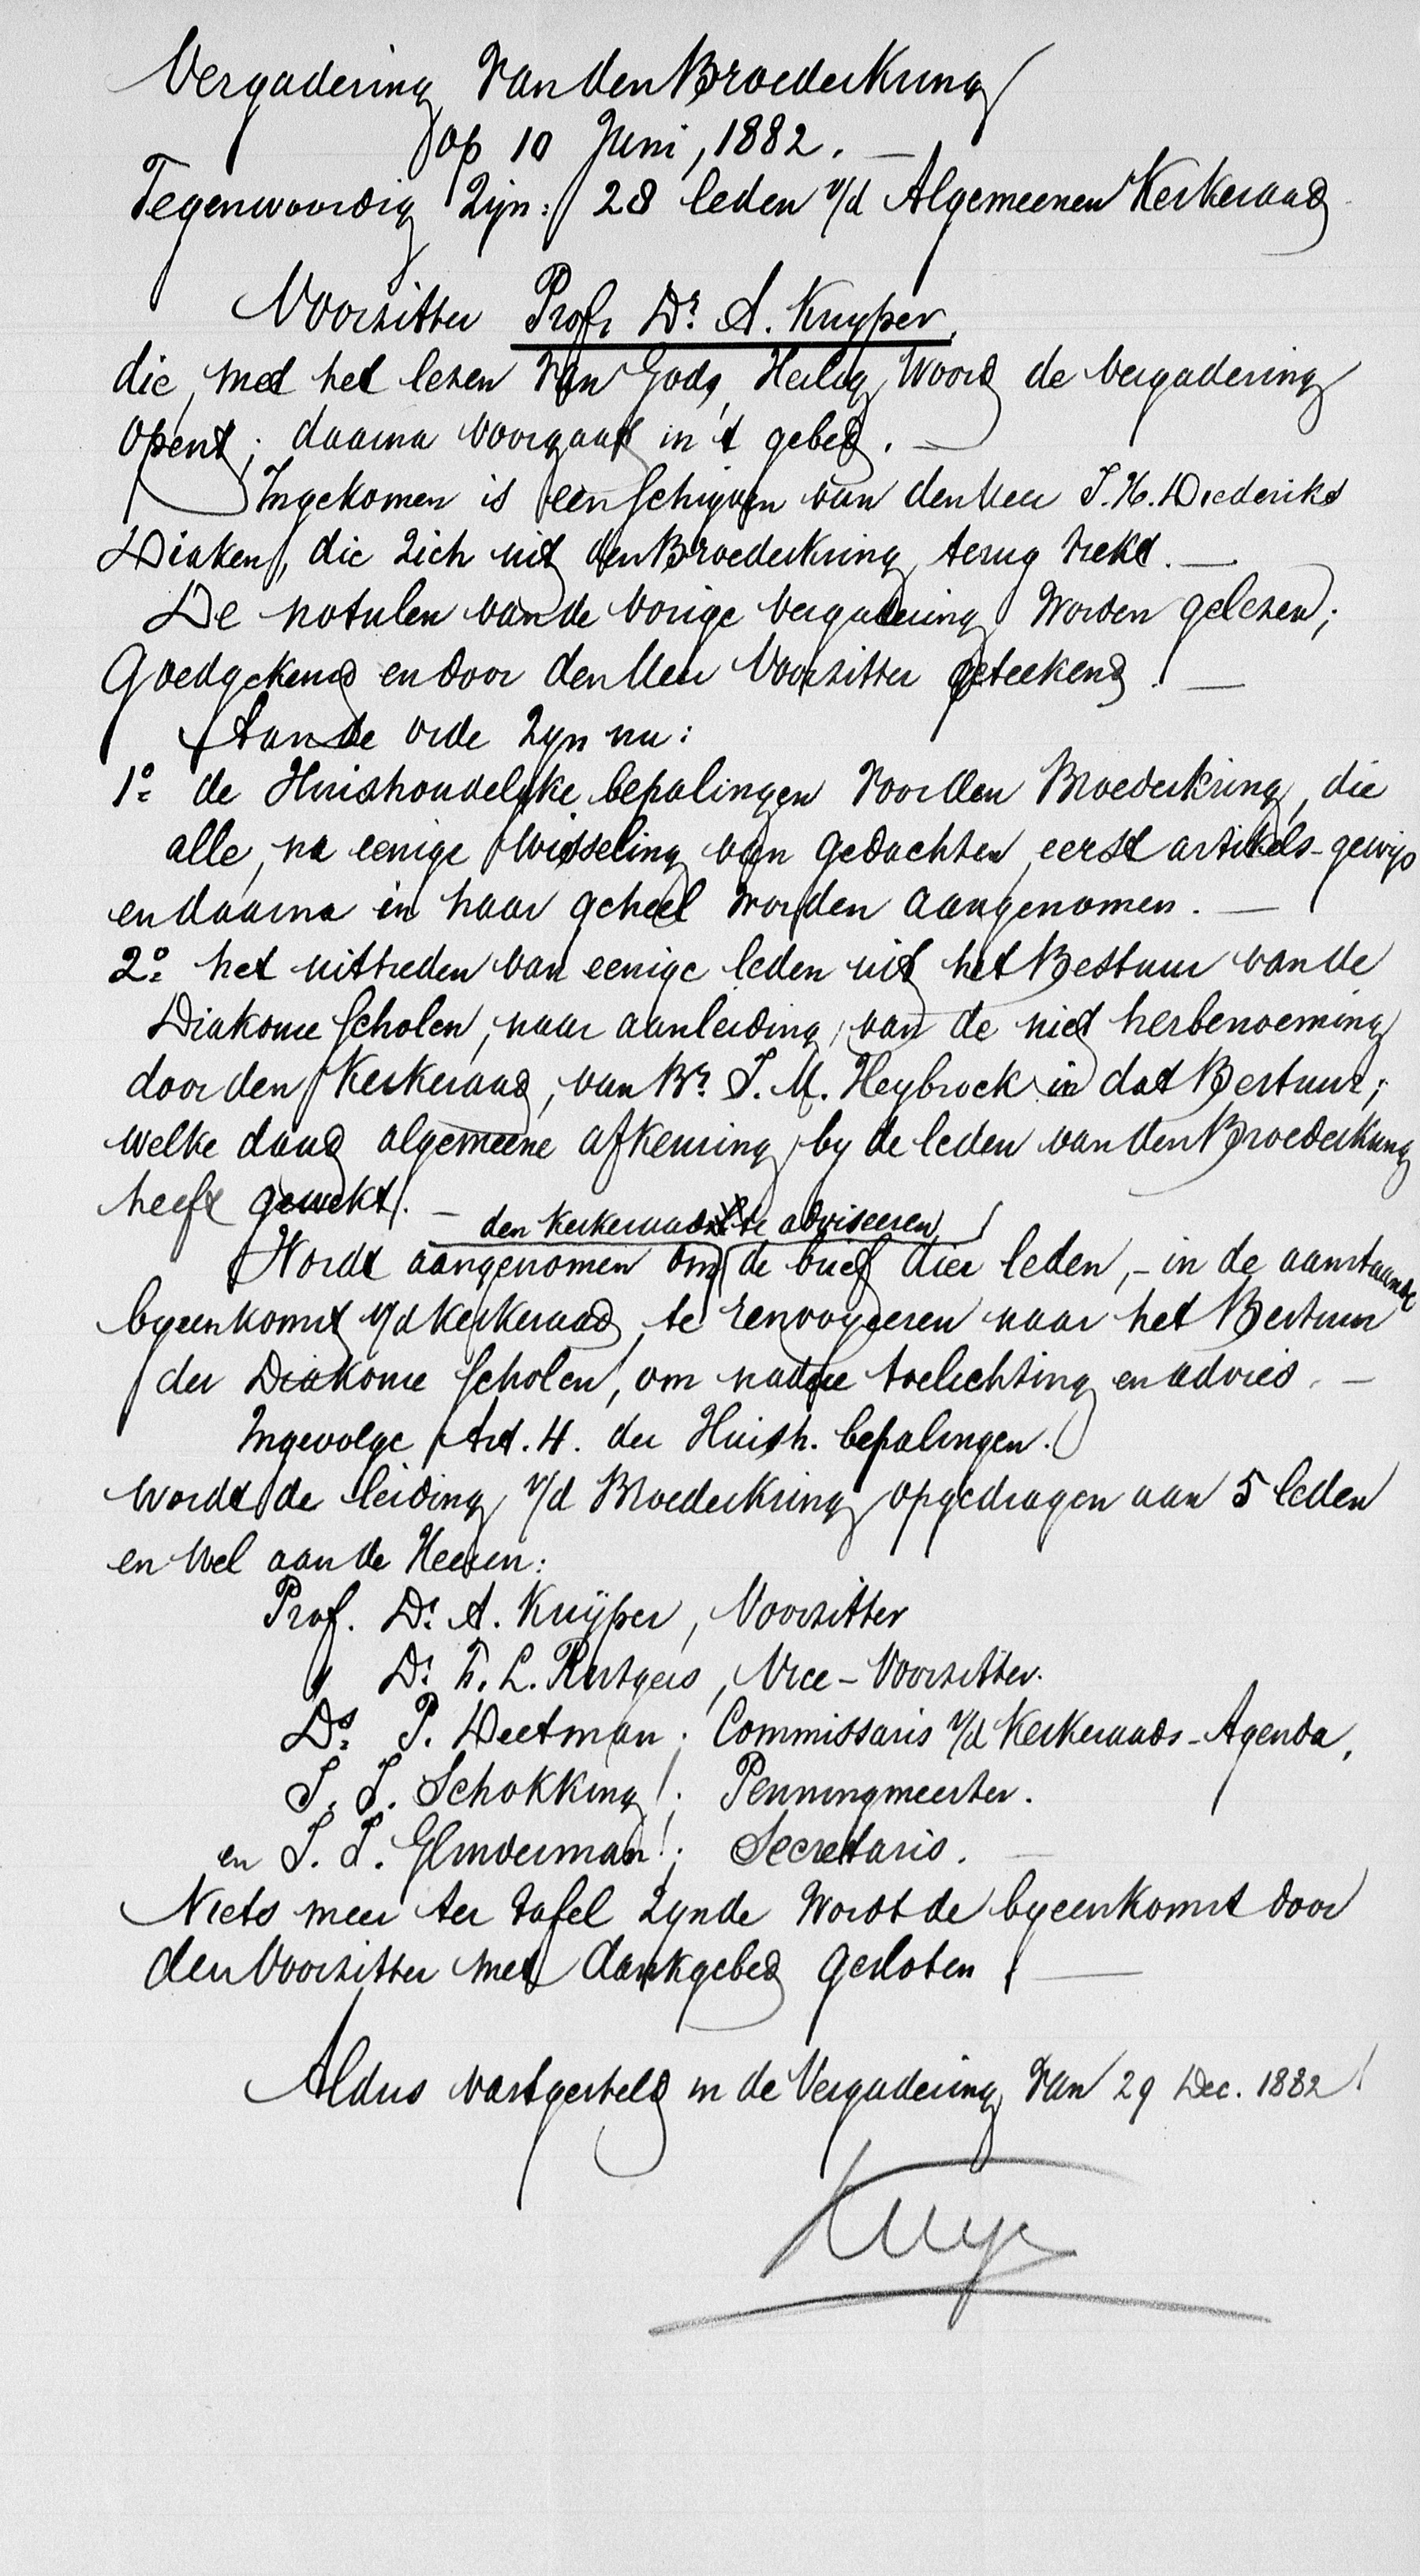 Vergadering van den Broederkring
op 10 Juni, 1882. —
Tegenwoordig zijn: 28 leden v/d Algemeenen Kerkeraad
Voorzitter Prof. Dr. A. Kuyper,
die, met het lezen van Gods Heilig Woord de vergadering
opent; daarna voorgaat in 't gebed. —
Ingekomen is een schrijven van den Heer J. H. Diederiks
Diaken, die zich uit den Broederkring terug trekt. —
De notulen van de vorige vergadering worden gelezen;
Goedgekeurd en door den Heer Voorzitter geteekend. —
Aan de orde zyn nu:
1o. de Huishoudelyke bepalingen voor den Broederkring, die
alle, na eenige wisseling van gedachten, eerst artikels-gewijs
en daarna in haar geheel worden aangenomen. —
2o. het uittreden van eenige leden uit het Bestuur van de
Diakonie Scholen, naar aanleiding van de niet herbenoeming
door den Kerkeraad, van Br. J. M. Heybrock in dat Bestuur;
welke daad algemeene afkeuring by de leden van den Broederkring
heeft gewekt. —
den Kerkeraad te adviseeren
Wordt aangenomen om de brief dier leden, - in de aanstaande
byeenkomst v/d Kerkeraad, te renvoyeeren naar het Bestuur
der Diakonie Scholen, om nadere toelichting en advies. —
Ingevolge Art. 4. der Huish. bepalingen.
wordt de leiding v/d Broederkring opgedragen aan 5 leden
en wel aan de Heeren:
Prof. Dr. A. Kuÿper, Voorzitter
" Dr. F. L. Rutgers, Vice-Voorzitter.
Ds. P. Deetman; Commissaris v/d Kerkeraads-Agenda,
J. J. Schokking; Penningmeester.
en J. J. Glinderman; Secretaris. —
Niets meer ter tafel zynde wordt de byeenkomst door
den Voorzitter met dankgebed gesloten. —
Aldus vastgesteld in de Vergadering van 29 Dec. 1882
Kuyper